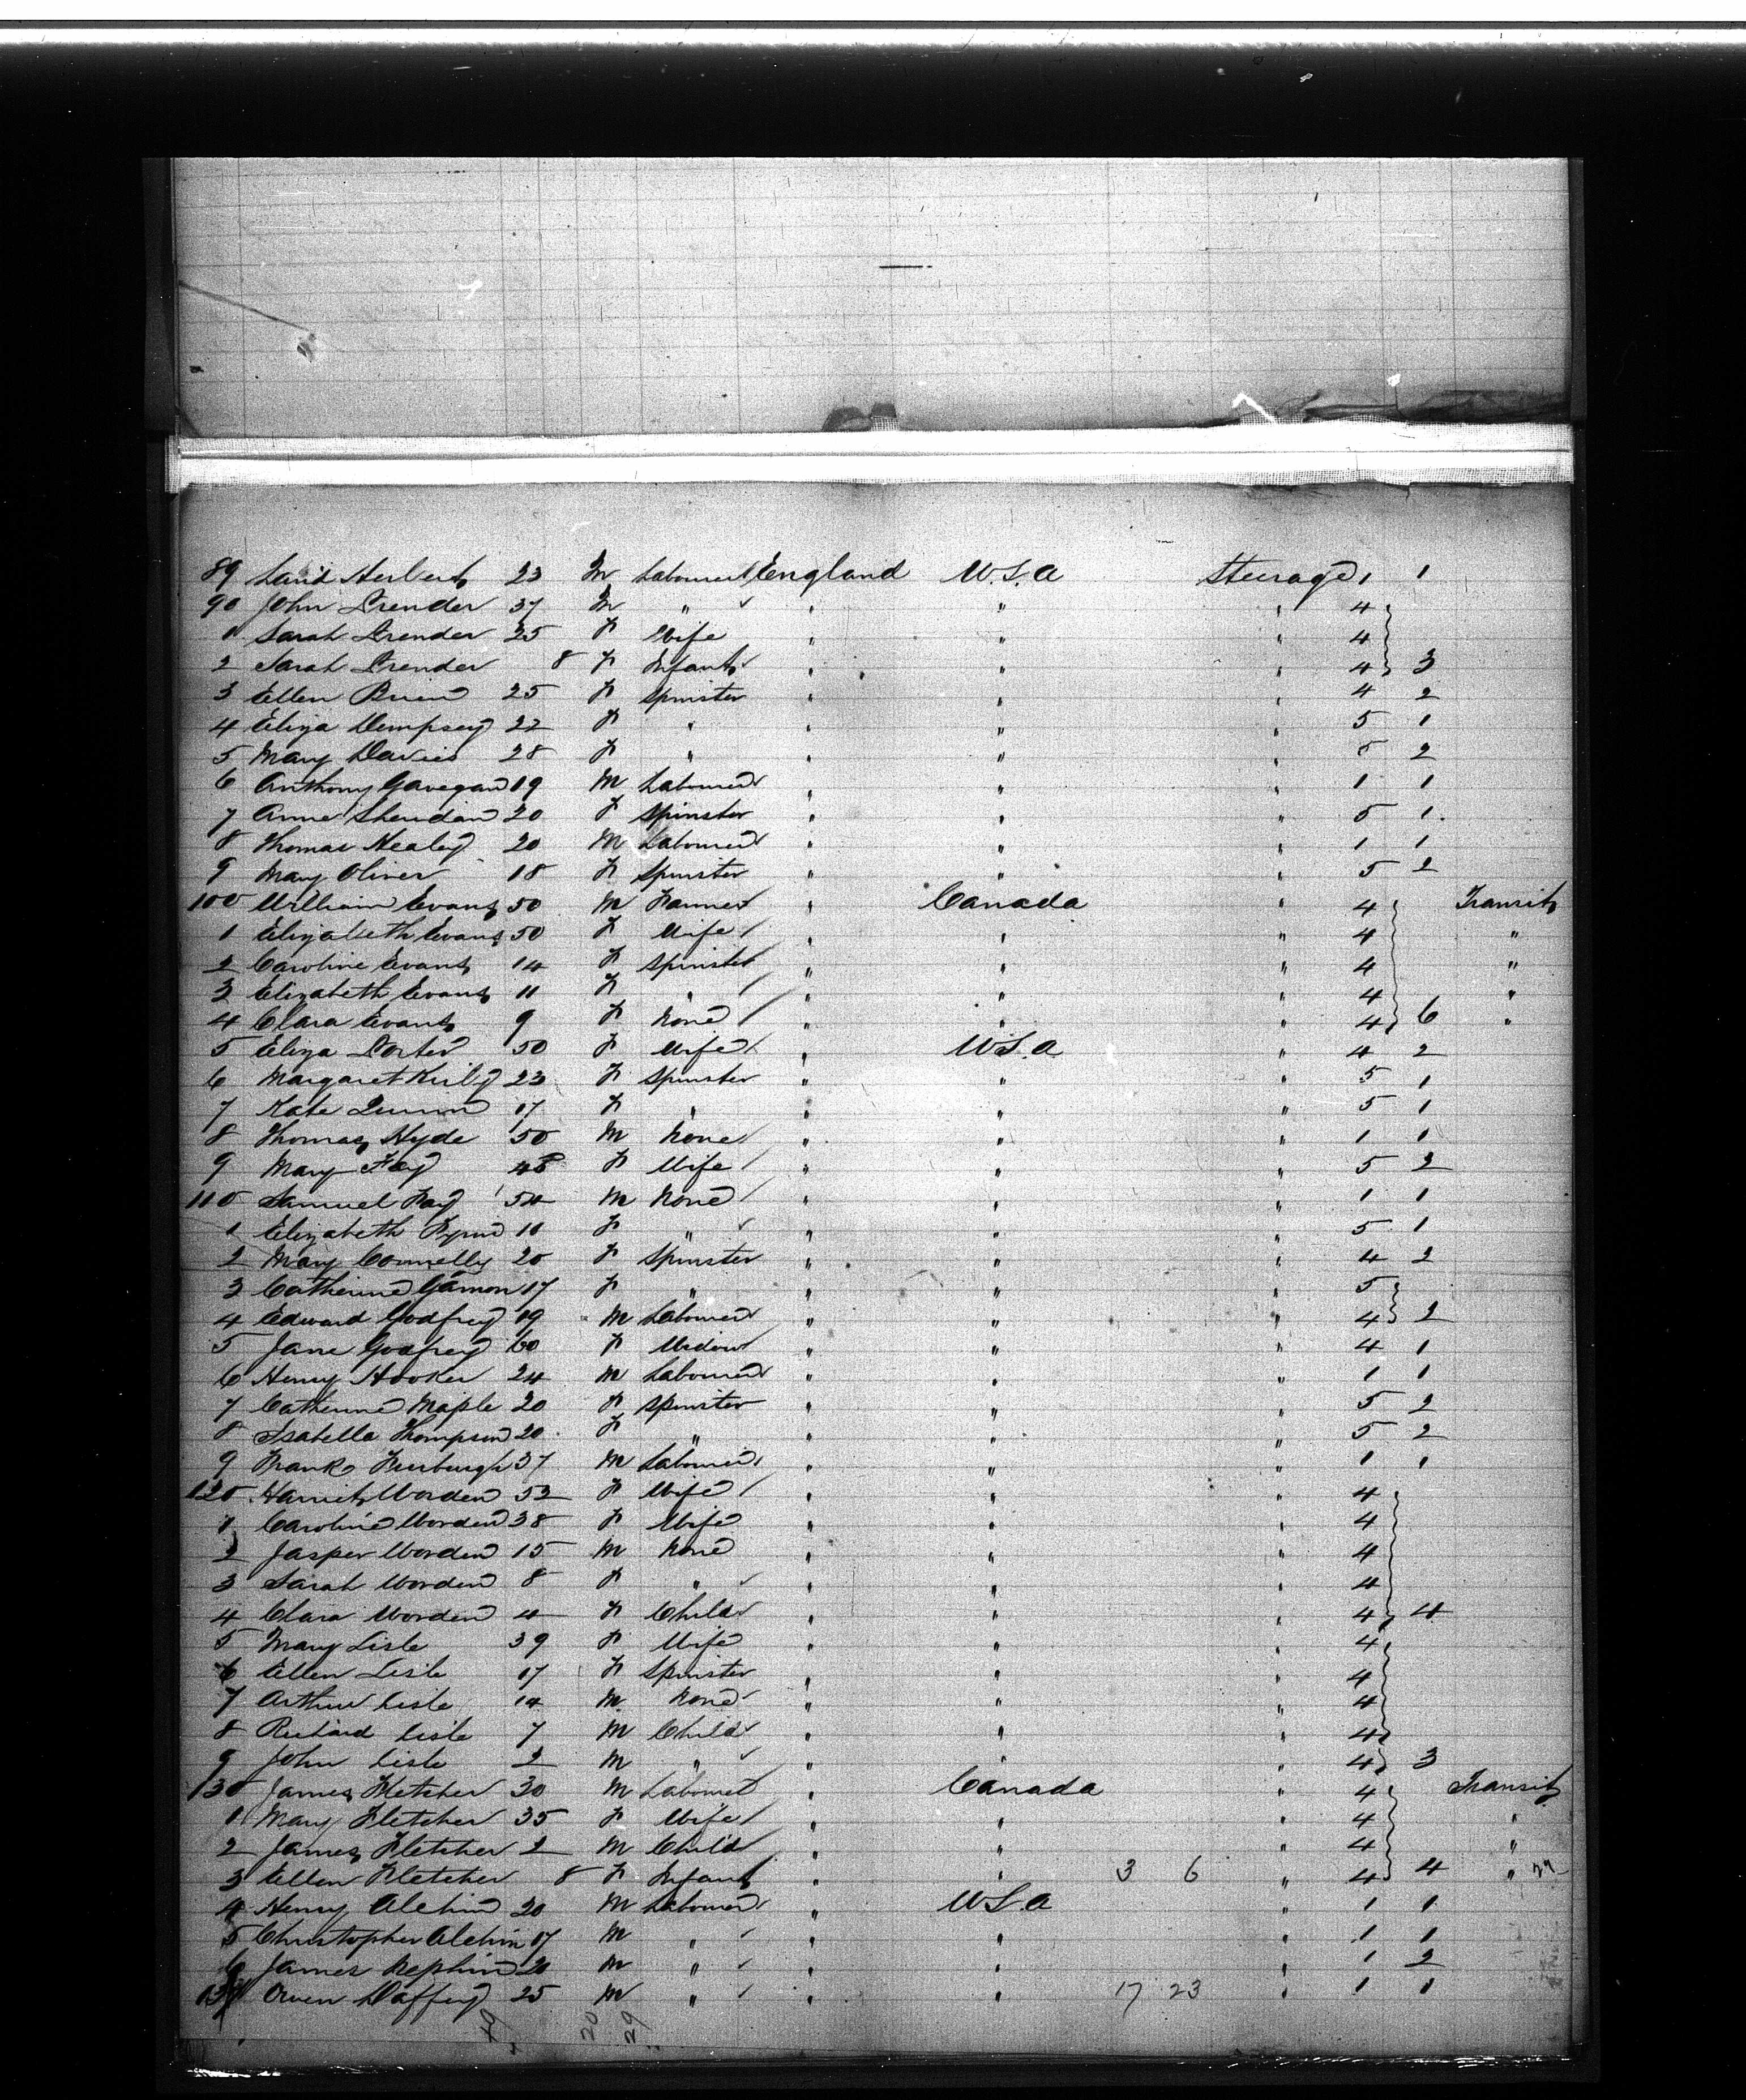 89 David Herbert 23 M Labourer England U.S.A Steerage 1 1
90 John Prender 37 M " " " " 4
1 Sarah Prender 25 F Wife " " " 4
2 Sarah Prender 8 F Infant " " " 4 3
3 Ellen Brien 25 F Spinster " " " 4 2
4 Eliza Dempsey 22 F " " " " 5 1
5 Mary Davies 28 F " " " " 5 2
6 Anthony Gavegan 19 M Labourer " " " 1 1
7 Anne Sheridan 20 F Spinster " " " 5 1
8 Thomas Healey 20 M Labourer " " " 1 1
9 Mary Oliver 18 F Spinster " " " 5 2
100 William Evans 50 M Farmer " Canada " 4 Transit
1 Elizabeth Evans 50 F Wife " " " 4 "
2 Caroline Evans 14 F Spinster " " " 4 "
3 Elizabeth Evans 11 F " " " " 4 "
4 Clara Evans 9 F None " " " 4 6 "
5 Eliza Porter 50 F Wife " U.S.A " 4 2
6 Margaret Kirby 23 F Spinster " " " 5 1
7 Kate Quinn 17 F " " " " 5 1
8 Thomas Hyde 50 M None " " " 1 1
9 Mary Fay 48 F Wife " " " 5 2
110 Samuel Fay 54 M None " " " 1 1
1 Elizabeth 10 F " " " " 5 1
2 Mary Connelly 20 F Spinster " " " 4 2
3 Catherine Gamon 17 F " " " " 5
4 Edward Godfrey 19 M Labourer " " " 4 2
5 Jane Godfrey 60 F Widow " " " 4 1
6 Henry Hooker 24 M Labourer " " " 1 1
7 Catherine Maple 20 F Spinster " " " 5 2
8 Isabella Thompson 20 F " " " " 5 2
9 Frank 37 M Labourer " " " 1 1
120 Harriet Worden 52 F Wife " " " 4
1 Caroline Worden 38 F Wife " " " 4
2 Jasper Worden 15 M None " " " 4
3 Sarah Worden 8 F " " " " 4
4 Clara Worden 4 F Child " " " 4 4
5 Mary Lisle 39 F Wife " " " 4
6 Ellen Lisle 17 F Spinster " " " 4
7 Arthur Lisle 14 M None " " " 4
8 Richard Lisle 7 M Child " " " 4
9 John Lisle 2 M " " " " 4 3
130 James Fletcher 30 M Labourer " Canada " 4 Transit
1 Mary Fletcher 35 F Wife " " " 4 "
2 James Fletcher 2 M Child " " " 4 "
3 Ellen Fletcher 8 F Infant " " 3 6 " 4 4 "
4 Henry Alchin 20 M Labourer " U.S.A " 1 1
5 Christopher Alchin 17 M " " " " 1 1
6 James Nephin 20 M " " " " 1 2
137 Owen Daffey 25 M " " " 17 23 " 1 1
49 20 29